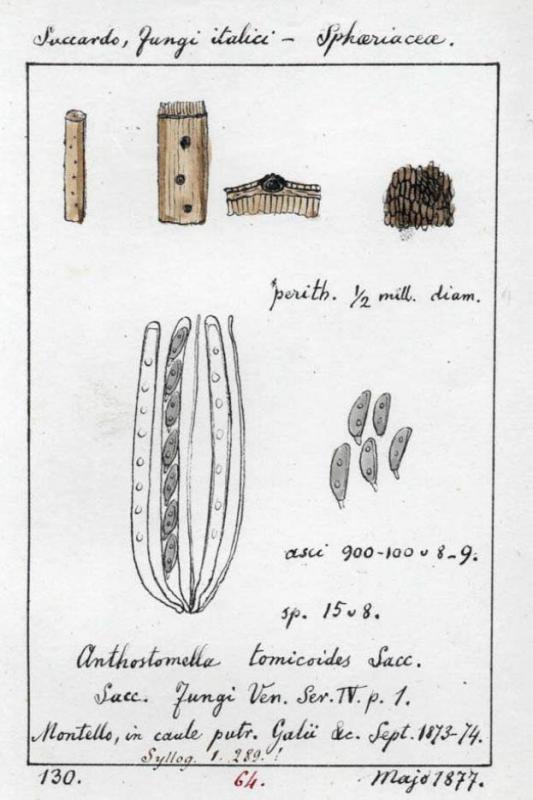 Saccardo, Fungi italici — Sphæriaceæ.
perith. 1/2 mill. diam.
asci 900-100 v 8-9.
sp. 15 v 8.
Anthostomella tomicoides Sacc.
Sacc. Fungi Ven. Ser. IV. p. 1.
Montello, in caule putr. Galii &c. Sept. 1873-74.
Syllog. 1. 289. !
130. 64. Majo 1877.